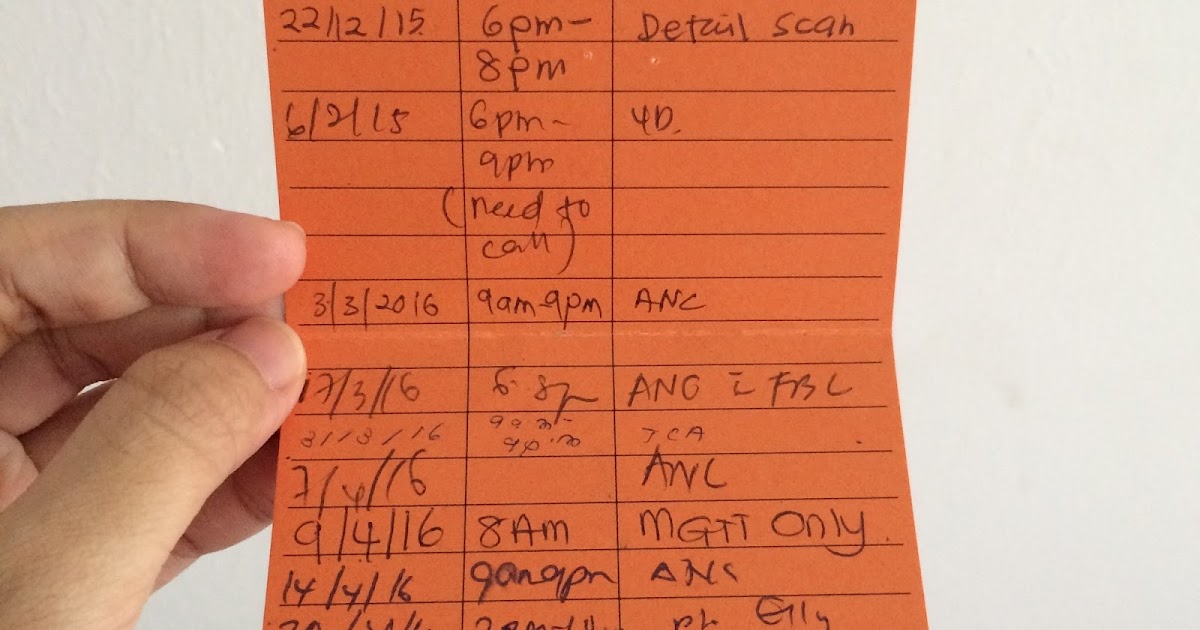 22/12/15 6pm- Detail Scan
8pm
6/2/15 6pm- 4D.
9pm
(need to
call)
3/3/2016 9am-9pm ANC
17/3/16 6-8p ANC c̄ FBC
31/3/16 9am-
9pm TCA
7/4/16 ANC
9/4/16 8Am MGTT Only.
14/4/16 9am9pm ANC
Elly